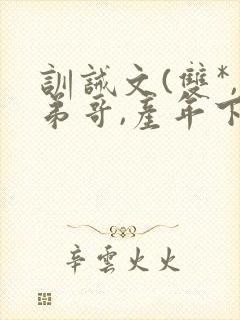 訓誡文(雙*,
弟哥,產年下
辛雲火火